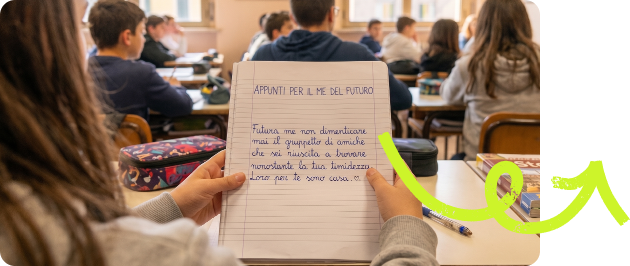 APPUNTI PER IL ME DEL FUTURO
Futura me non dimenticare
mai il gruppetto di amiche
che sei riuscita a trovare
nonostante la tua timidezza
Loro per te sono casa. ♡